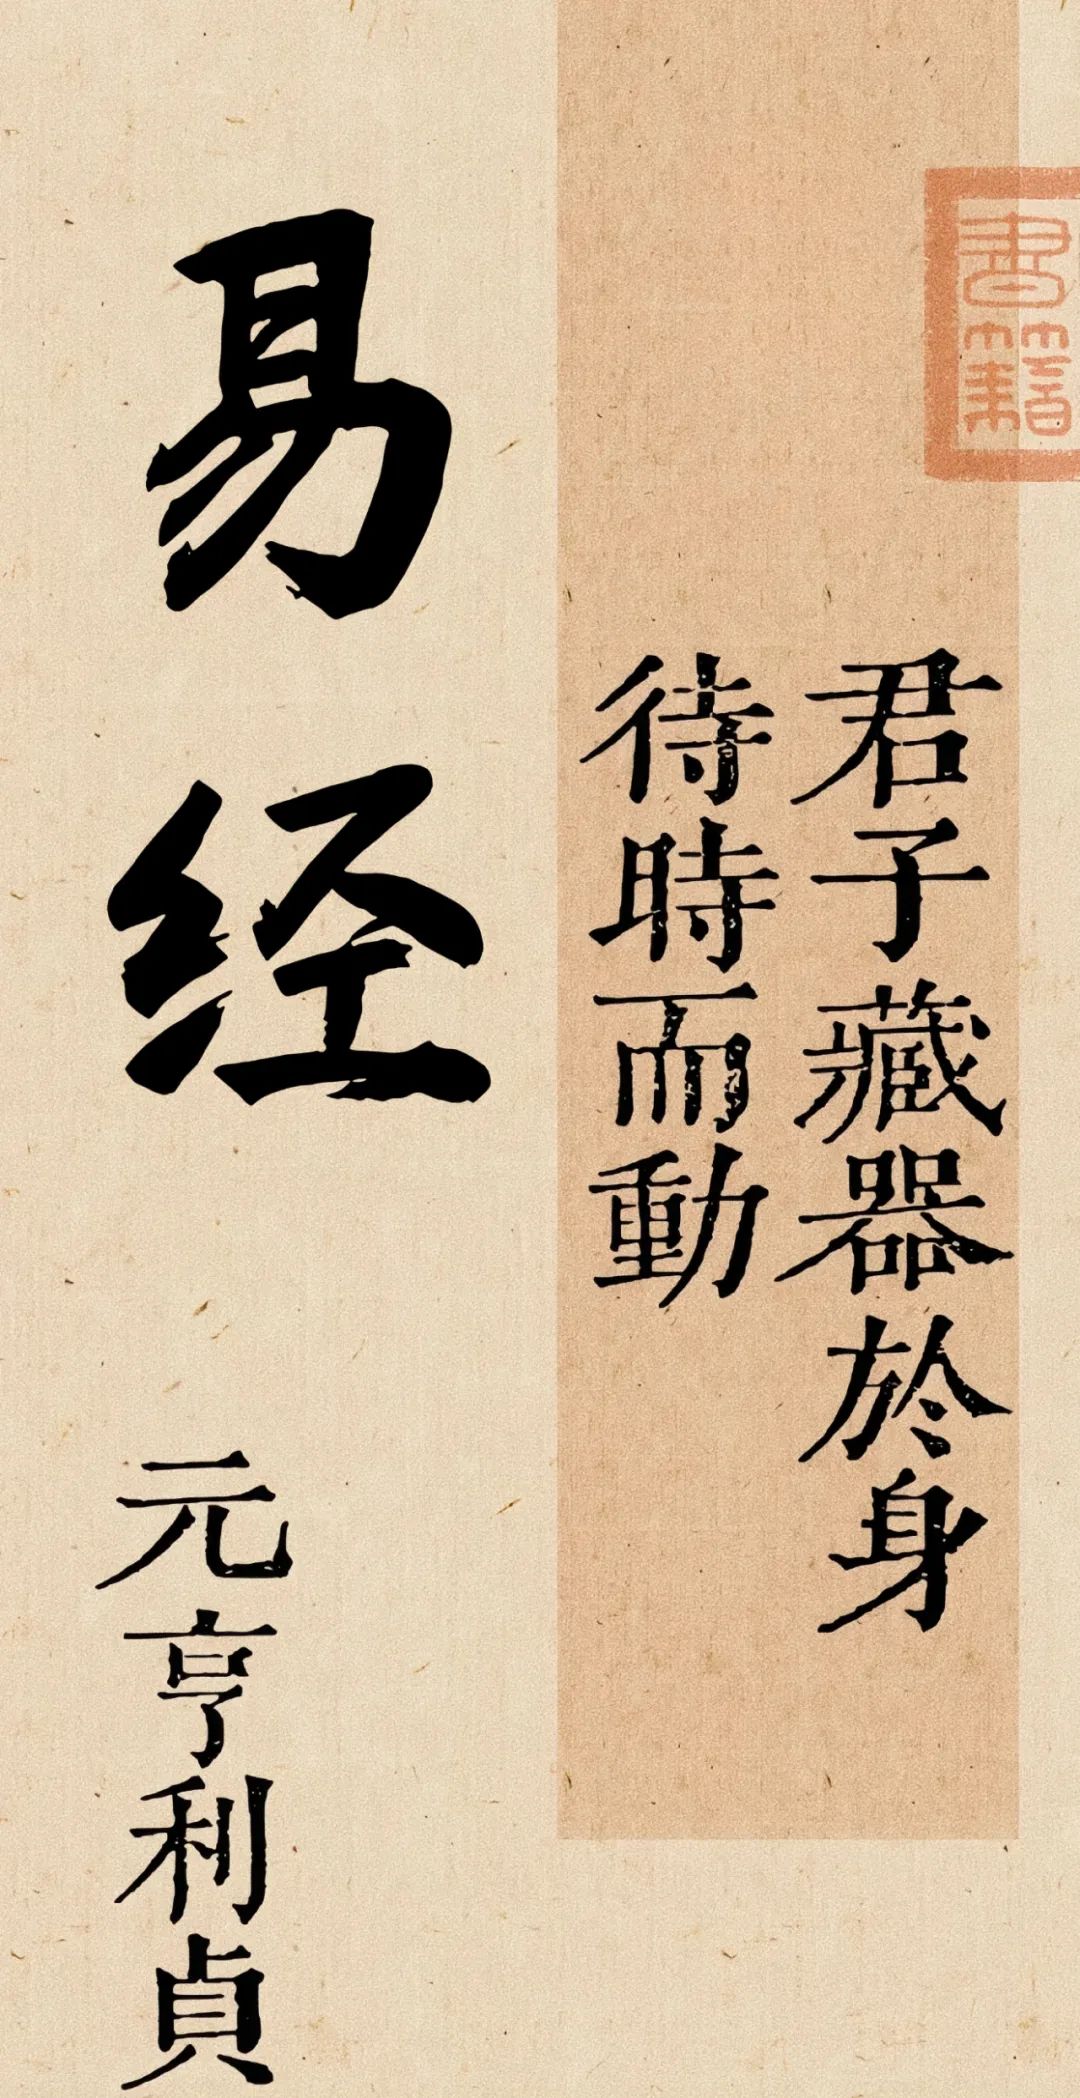 君子藏器於身
待時而動
易经
元亨利貞
書籍